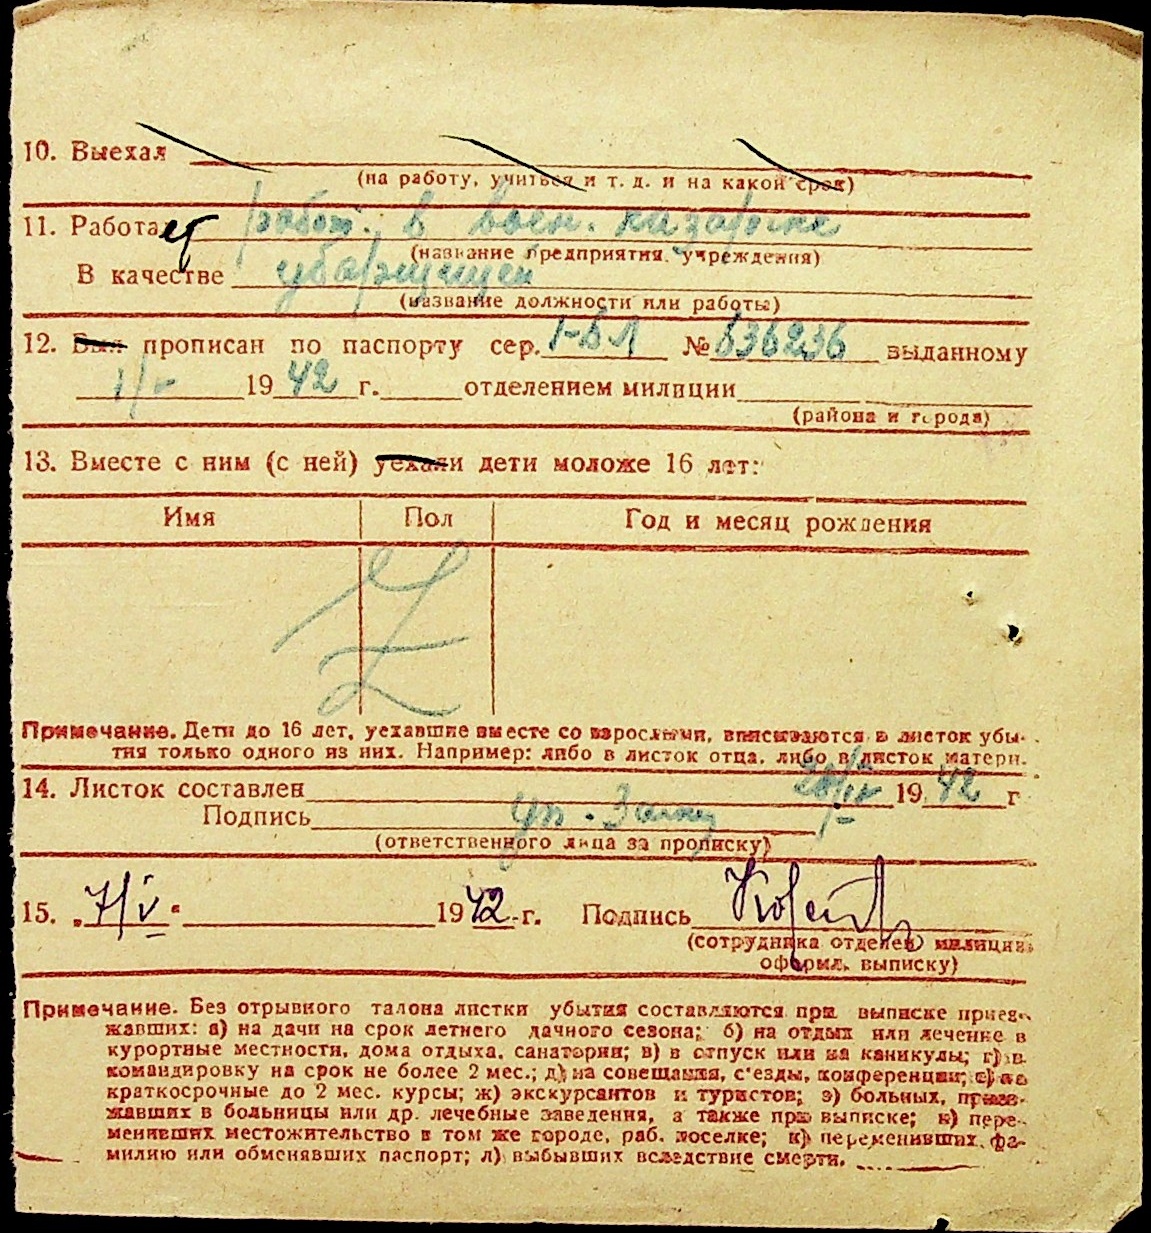 10. Выехал
(на работу, учиться и т. д. и на какой срок)
11. Работает работ. в воен. казарме
(название предприятия, учреждения)
В качестве уборщицей
(название должности или работы)
12. Был прописан по паспорту сер. 1-БЛ № 636236 выданному
1942 г. отделением милиции
(района и города)
13. Вместе с ним (с ней) уехали дети моложе 16 лет:
Имя Пол Год и месяц рождения
Примечание. Дети до 16 лет, уехавшие вместе со взрослыми, вписываются в листок убы-
тия только одного из них. Например: либо в листок отца, либо в листок матери.
14. Листок составлен 1942 г
Подпись уп.
(ответственного лица за прописку)
15. „7/V“ 1942 г. Подпись
(сотрудника отделен. милиции,
оформл. выписку)
Примечание. Без отрывного талона листки убытия составляются при выписке приез-
жавших: а) на дачи на срок летнего дачного сезона; б) на отдых или лечение в
курортные местности, дома отдыха, санатории; в) в отпуск или на каникулы; г) в
командировку на срок не более 2 мес.; д) на совещания, с'езды, конференции; е) на
краткосрочные до 2 мес. курсы; ж) экскурсантов и туристов; з) больных, приез-
жавших в больницы или др. лечебные заведения, а также при выписке; и) пере-
менивших местожительство в том же городе, раб. поселке; к) переменивших фа-
милию или обменявших паспорт; л) выбывших вследствие смерти.